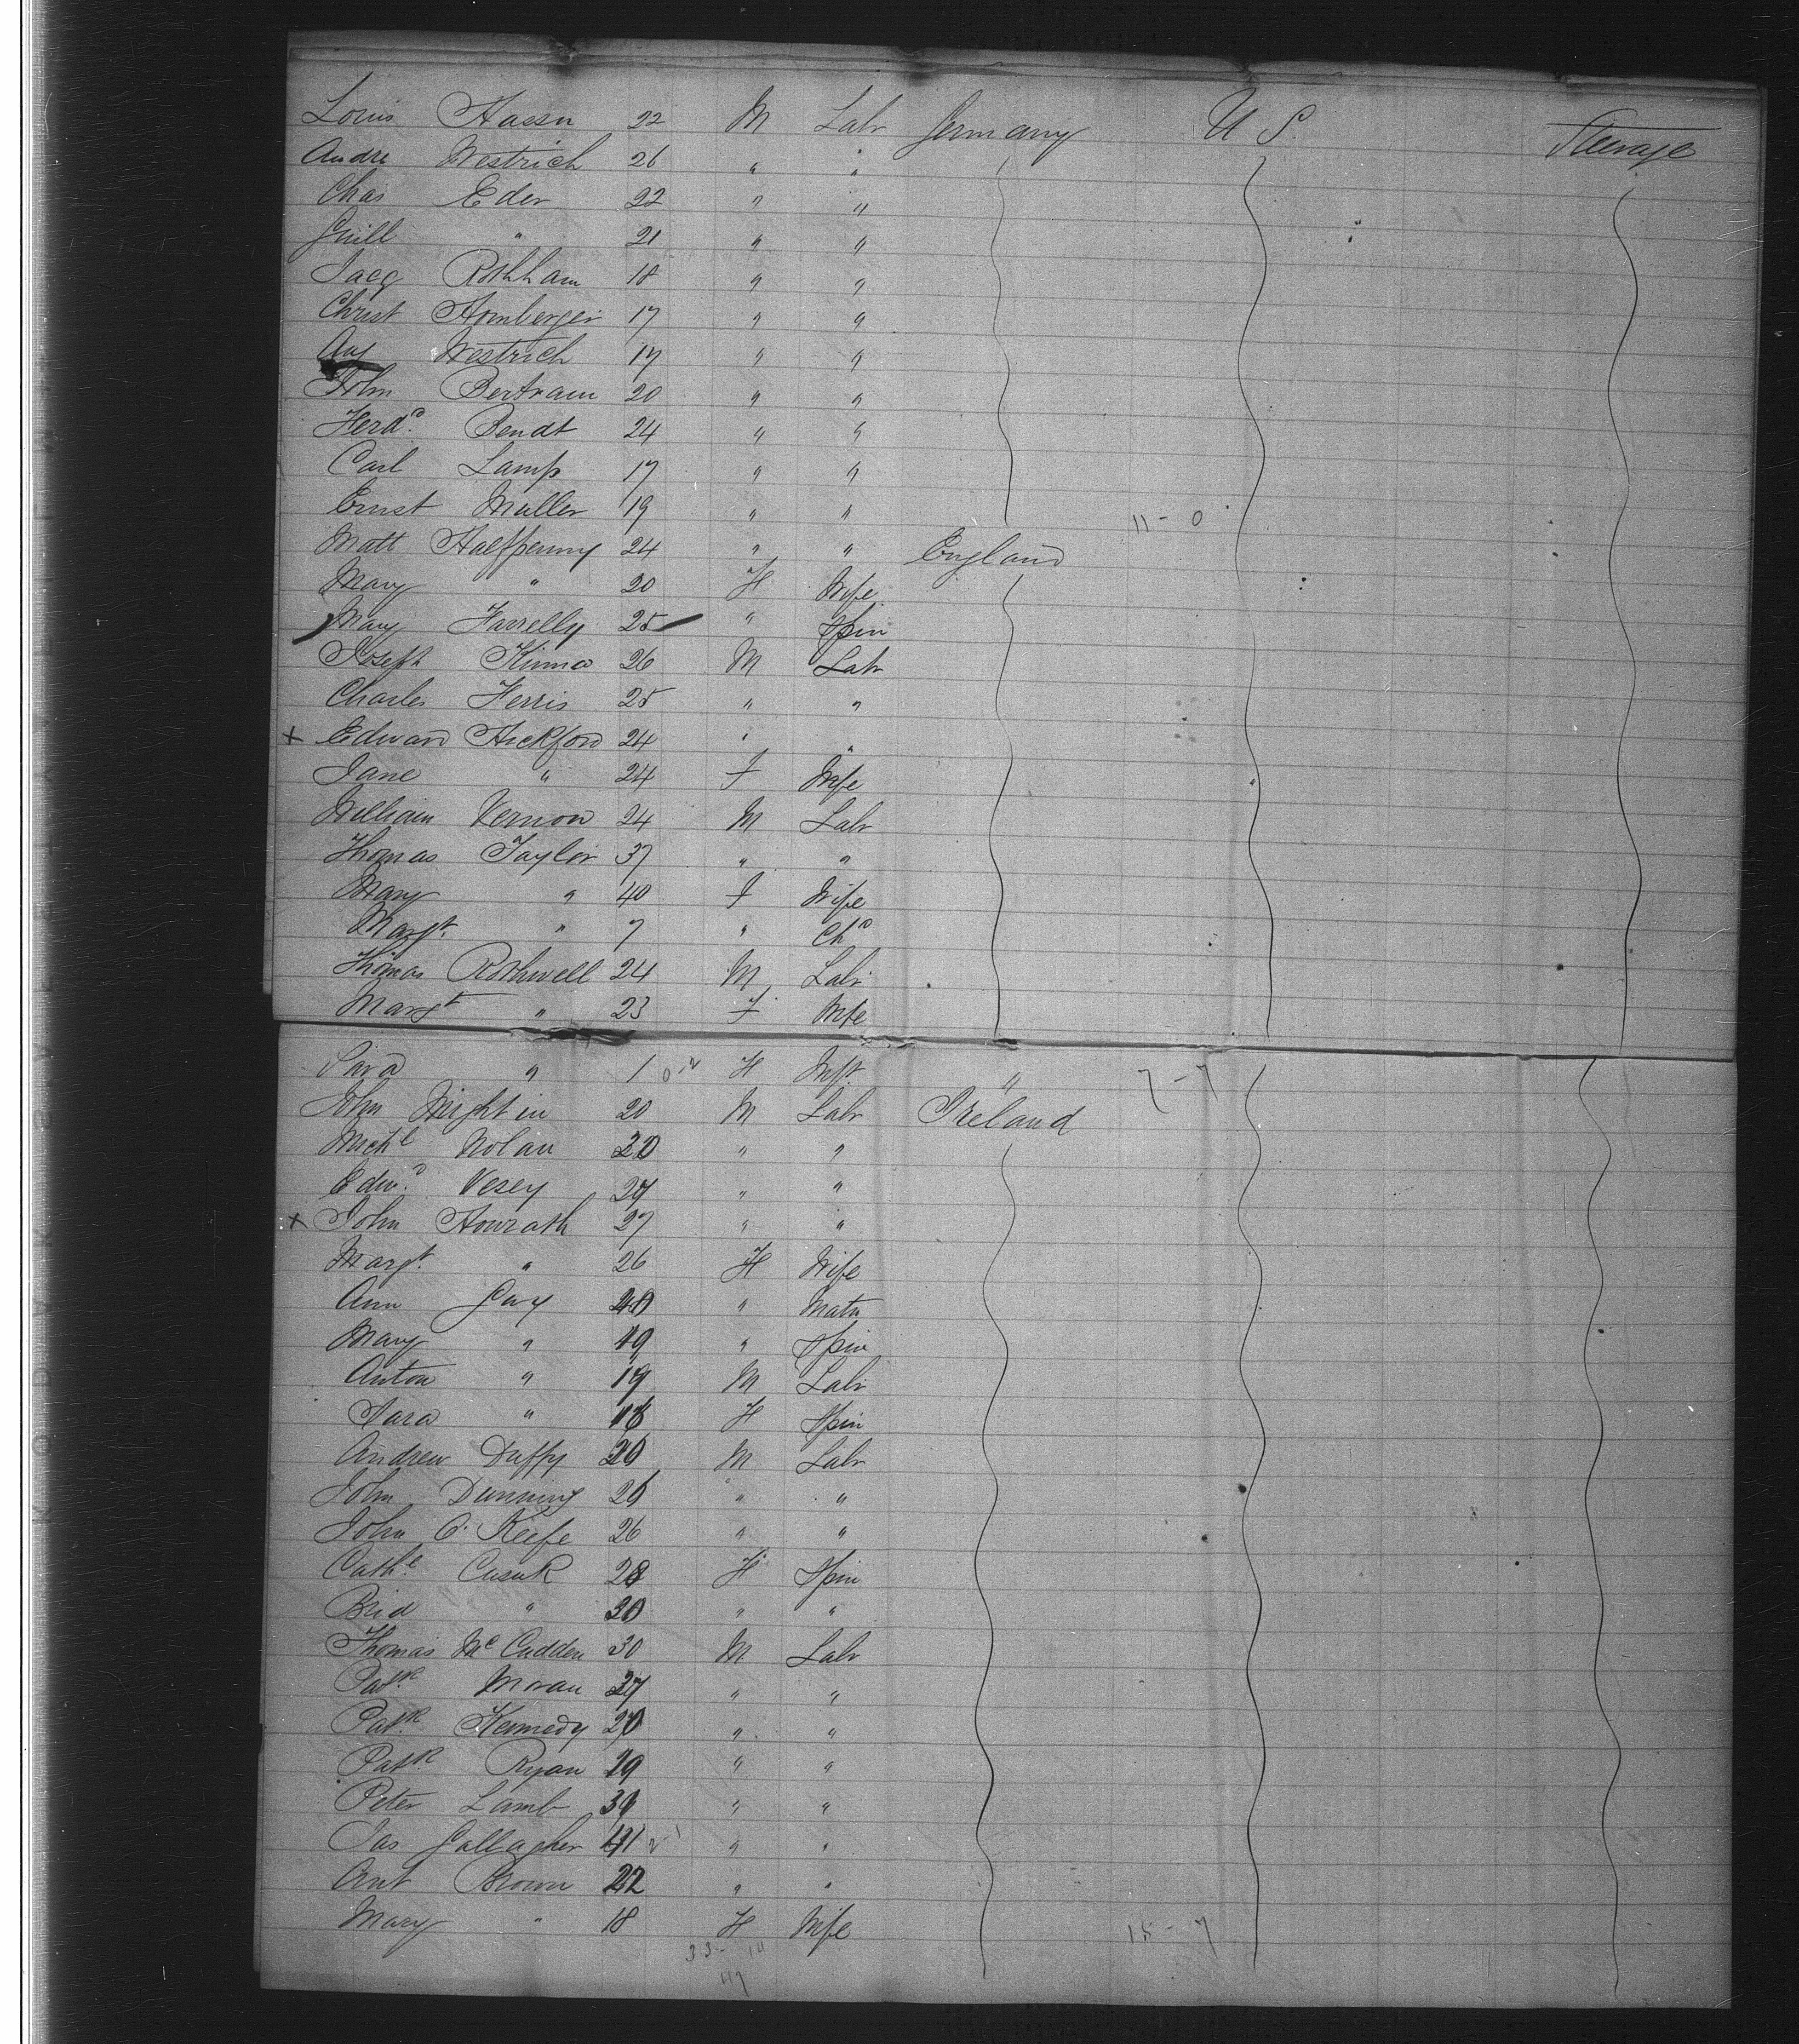 Louis Hassn 22 M Labr Germany U S. Steerage
Andre Westrich 26 " "
Chas Eder 22 " "
Guill " 21 " "
Jacq Rothham 18 " "
Christ Homberger 17 " "
Aug Westrich 17 " "
John Bertram 20 " "
Ferdd. Bendt 24 " "
Carl Lamp 17 " "
Ernst Muller 19 " " 11-0
Matt Halfpenny 24 " " England
Mary " 20 F Wife
Mary Farrelly 25 " Spin
Joseph 26 M Labr
Charles Ferris 25 " "
+ Edward Hickford 24 " "
Jane " 24 F Wife
William Vernon 24 M Labr
Thomas Taylor 37 " "
Mary " 40 F Wife
Margt. " 7 " Chd
Thomas Rothwell 24 M Labr
Margt " 23 F Wife
Sara " 1 F Inft. " 7-7
John Nightin 20 M Labr Ireland
Michl Nolan 20 " "
Edwd. Vesey 27 " "
+ John Howrath 27 " "
Margt. " 26 F Wife
Ann Gay 40 " Matn
Mary " 19 " Spin
Anton " 19 M Labr
Sara " 18 F Spin
Andrew Duffy 20 M Labr
John Dunning 26 " "
John O'Keefe 26 " "
Cathe Cusuk 28 F Spin
Brid " 30 " "
Thomas McCudden 30 M Labr
Patk. Moran 37 " "
Patk. Kennedy 20 " "
Patk. Ryan 29 " "
Peter Lamb 31 " "
Jas Gallagher 41 " "
Ant Brown 22 " "
Mary " 18 F Wife 15-7
33-14
47